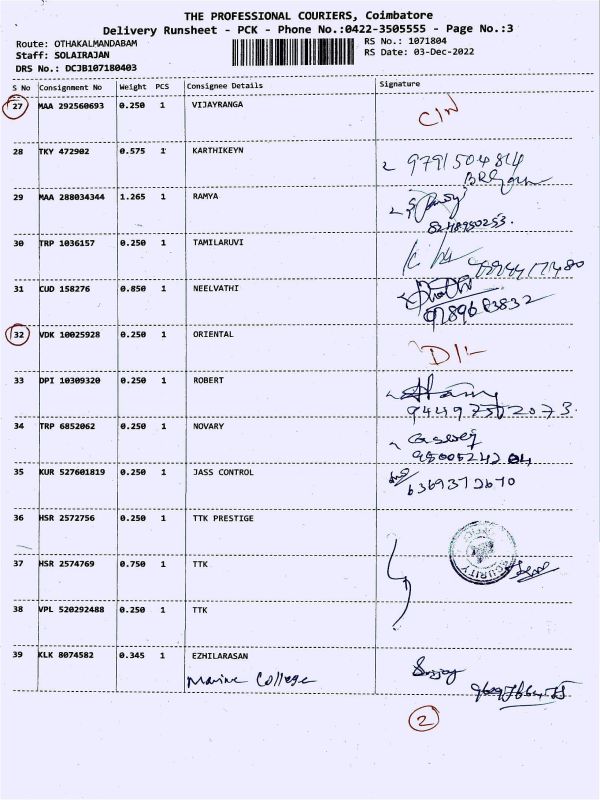 THE PROFESSIONAL COURIERS, Coimbatore
Delivery Runsheet - PCK - Phone No.:0422-3505555 - Page No.:3
Route: OTHAKALMANDABAM
RS No.: 1071804
Staff: SOLAIRAJAN
RS Date: 03-Dec-2022
DRS No.: DCJB107180403
S No Consignment No Weight PCS Consignee Details Signature
27 MAA 292560693 0.250 1 VIJAYRANGA
28 TKY 472902 0.575 1 KARTHIKEYN
9791504814
29 MAA 288034344 1.265 1 RAMYA
8248950253.
30 TRP 1036157 0.250 1 TAMILARUVI
31 CUD 158276 0.850 1 NEELVATHI
9789683832
32 VDK 10025928 0.250 1 ORIENTAL
33 DPI 10309320 0.250 1 ROBERT
34 TRP 6852062 0.250 1 NOVARY
35 KUR 527601819 0.250 1 JASS CONTROL
6369372670
36 HSR 2572756 0.250 1 TTK PRESTIGE
37 HSR 2574769 0.750 1 TTK
SECURITY
38 VPL 520292488 0.250 1 TTK
39 KLK 8074582 0.345 1 EZHILARASAN
Marine College
2